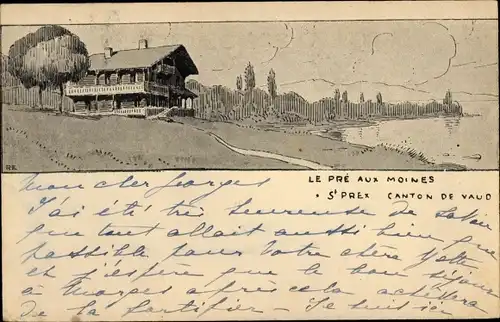 HR
LE PRÉ AUX MOINES
• St PREX CANTON DE VAUD
Mon cher Georges
J'ai été très heureuse de savoir
que tout allait aussi bien que
possible pour votre chère
et j'espère que le bon séjour
à Morges après cela achèvera
de la fortifier - Je suis ici